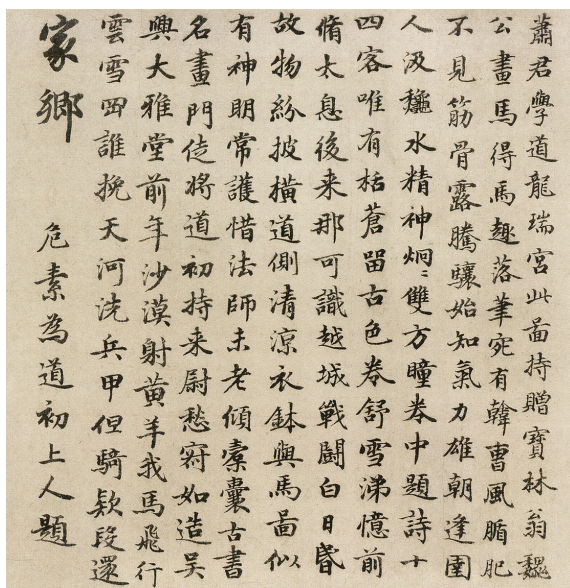 蕭君學道龍瑞宮此畐持贈寶林翁魏
公畫馬得馬趣落筆宛有韓曹風腯肥
不見筋骨露騰驤始知氣力雄朝逢圉
人汲龝水精神炯〻雙方瞳卷中題詩十
四客唯有栝蒼畱古色卷舒雪涕憶前
脩太息後来那可識越城戰鬪白日昬
故物紛披橫道側清涼衣鉢與馬畐似
有神明常護惜法師未老傾槖囊古書
名畫門徒將道初持来尉愁寂如造吳
興大雅堂前年沙漠射黃羊我馬飛行
雲雪㘞誰挽天河洗兵甲但騎欵段還
家鄉
危素為道初上人題